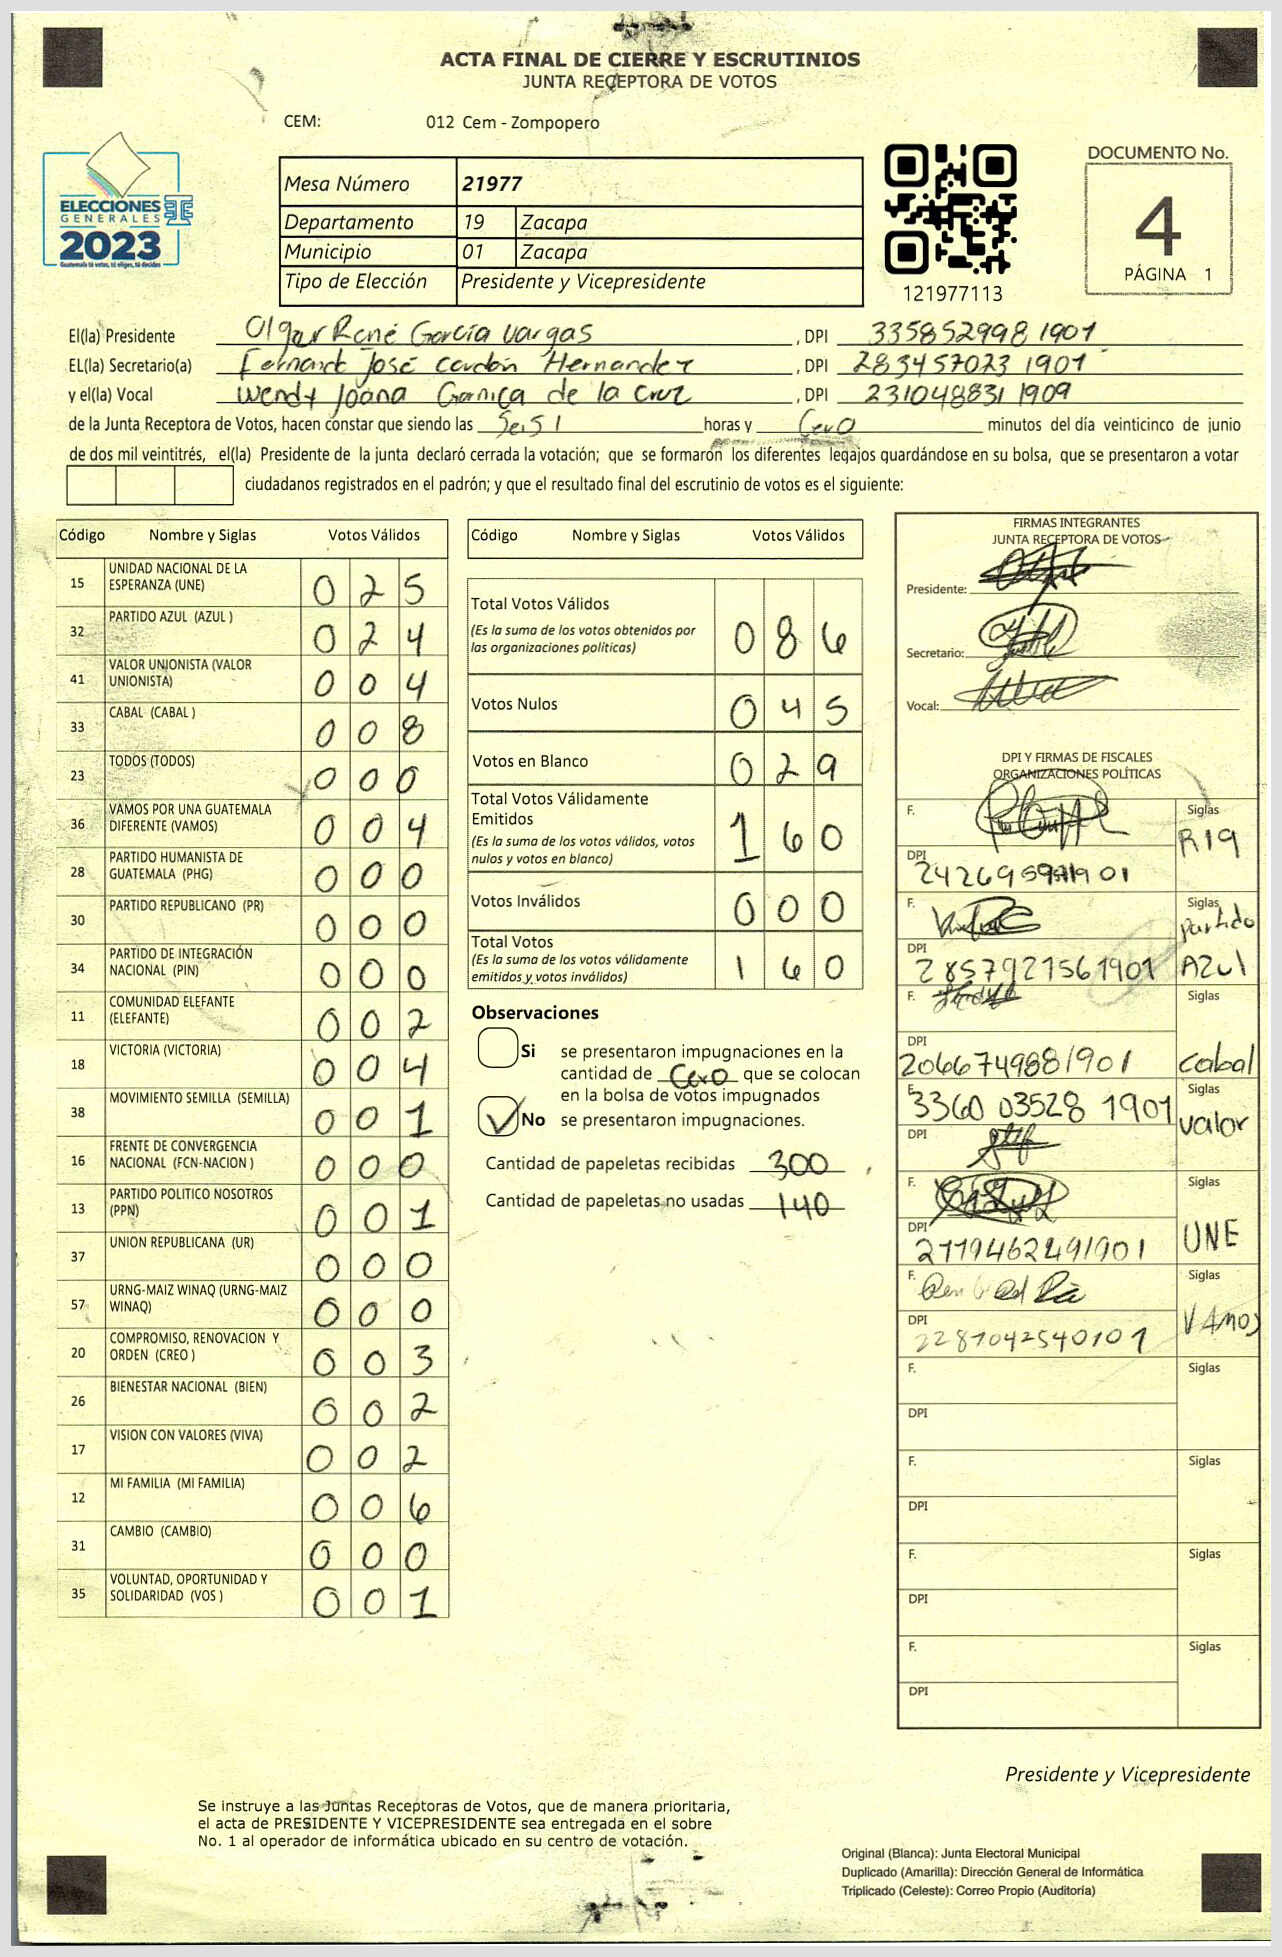 ACTA FINAL DE CIERRE Y ESCRUTINIOS
JUNTA RECEPTORA DE VOTOS
CEM: 012 Cem - Zompopero
ELECCIONES
GENERALES
2023
Guatemala tú votas, tú eliges, tú decides
Mesa Número 21977
Departamento 19 Zacapa
Municipio 01 Zacapa
Tipo de Elección Presidente y Vicepresidente
121977113
DOCUMENTO No.
4
PÁGINA 1
El(la) Presidente Olgar René García Vargas , DPI 3358529981901
EL(la) Secretario(a) Fernando José cordón Hernandez , DPI 2834570231901
y el(la) Vocal Wendy Joana Garnica de la Cruz , DPI 2310488311909
de la Junta Receptora de Votos, hacen constar que siendo las Seis horas y Cero minutos del día veinticinco de junio
de dos mil veintitrés, el(la) Presidente de la junta declaró cerrada la votación; que se formaron los diferentes legajos guardándose en su bolsa, que se presentaron a votar
ciudadanos registrados en el padrón; y que el resultado final del escrutinio de votos es el siguiente:
Código Nombre y Siglas Votos Válidos
15 UNIDAD NACIONAL DE LA ESPERANZA (UNE) 0 2 5
32 PARTIDO AZUL (AZUL ) 0 2 4
41 VALOR UNIONISTA (VALOR UNIONISTA) 0 0 4
33 CABAL (CABAL ) 0 0 8
23 TODOS (TODOS) 0 0 0
36 VAMOS POR UNA GUATEMALA DIFERENTE (VAMOS) 0 0 4
28 PARTIDO HUMANISTA DE GUATEMALA (PHG) 0 0 0
30 PARTIDO REPUBLICANO (PR) 0 0 0
34 PARTIDO DE INTEGRACIÓN NACIONAL (PIN) 0 0 0
11 COMUNIDAD ELEFANTE (ELEFANTE) 0 0 2
18 VICTORIA (VICTORIA) 0 0 4
38 MOVIMIENTO SEMILLA (SEMILLA) 0 0 1
16 FRENTE DE CONVERGENCIA NACIONAL (FCN-NACION ) 0 0 0
13 PARTIDO POLITICO NOSOTROS (PPN) 0 0 1
37 UNION REPUBLICANA (UR) 0 0 0
57 URNG-MAIZ WINAQ (URNG-MAIZ WINAQ) 0 0 0
20 COMPROMISO, RENOVACION Y ORDEN (CREO ) 0 0 3
26 BIENESTAR NACIONAL (BIEN) 0 0 2
17 VISION CON VALORES (VIVA) 0 0 2
12 MI FAMILIA (MI FAMILIA) 0 0 6
31 CAMBIO (CAMBIO) 0 0 0
35 VOLUNTAD, OPORTUNIDAD Y SOLIDARIDAD (VOS ) 0 0 1
Código Nombre y Siglas Votos Válidos
Total Votos Válidos 0 8 6
(Es la suma de los votos obtenidos por
las organizaciones políticas)
Votos Nulos 0 4 5
Votos en Blanco 0 2 9
Total Votos Válidamente
Emitidos 1 6 0
(Es la suma de los votos válidos, votos
nulos y votos en blanco)
Votos Inválidos 0 0 0
Total Votos
(Es la suma de los votos válidamente
emitidos y votos inválidos) 1 6 0
Observaciones
Si se presentaron impugnaciones en la
cantidad de Cero que se colocan
en la bolsa de votos impugnados
No se presentaron impugnaciones.
Cantidad de papeletas recibidas 300
Cantidad de papeletas no usadas 140
FIRMAS INTEGRANTES
JUNTA RECEPTORA DE VOTOS
Presidente:
Secretario:
Vocal:
DPI Y FIRMAS DE FISCALES
ORGANIZACIONES POLÍTICAS
F. Siglas
DPI
F. Siglas partido
DPI 2857927561901 Azul
F. Siglas
DPI 2066749881901 Cabal
F. 3360035281901 Siglas
DPI valor
F. Siglas
DPI 2779462491901 UNE
F. Siglas
DPI 2287042540101 VAMOS
F. Siglas
DPI
F. Siglas
DPI
F. Siglas
DPI
F. Siglas
DPI
Presidente y Vicepresidente
Se instruye a las Juntas Receptoras de Votos, que de manera prioritaria,
el acta de PRESIDENTE Y VICEPRESIDENTE sea entregada en el sobre
No. 1 al operador de informática ubicado en su centro de votación.
Original (Blanca): Junta Electoral Municipal
Duplicado (Amarilla): Dirección General de Informática
Triplicado (Celeste): Correo Propio (Auditoría)